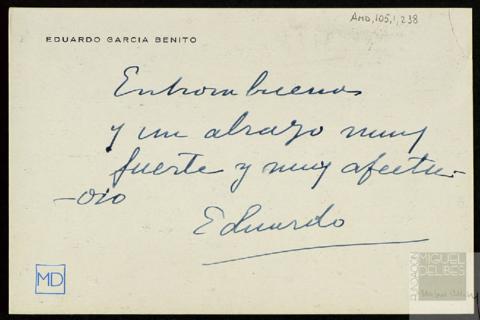 AMD,105,1,238
EDUARDO GARCIA BENITO
Enhorabuena
y un abrazo muy
fuerte y muy afectu-
-oso
Eduardo
MD
FUNDACIÓN
MIGUEL
DELIBES